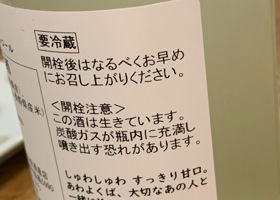 要冷蔵
開栓後はなるべくお早め
にお召し上がりください。
<開栓注意>
この酒は生きています。
炭酸ガスが瓶内に充満し
噴き出す恐れがあります。
しゅわしゅわ すっきり甘口。
あわよくば、大切なあの人と
一緒に